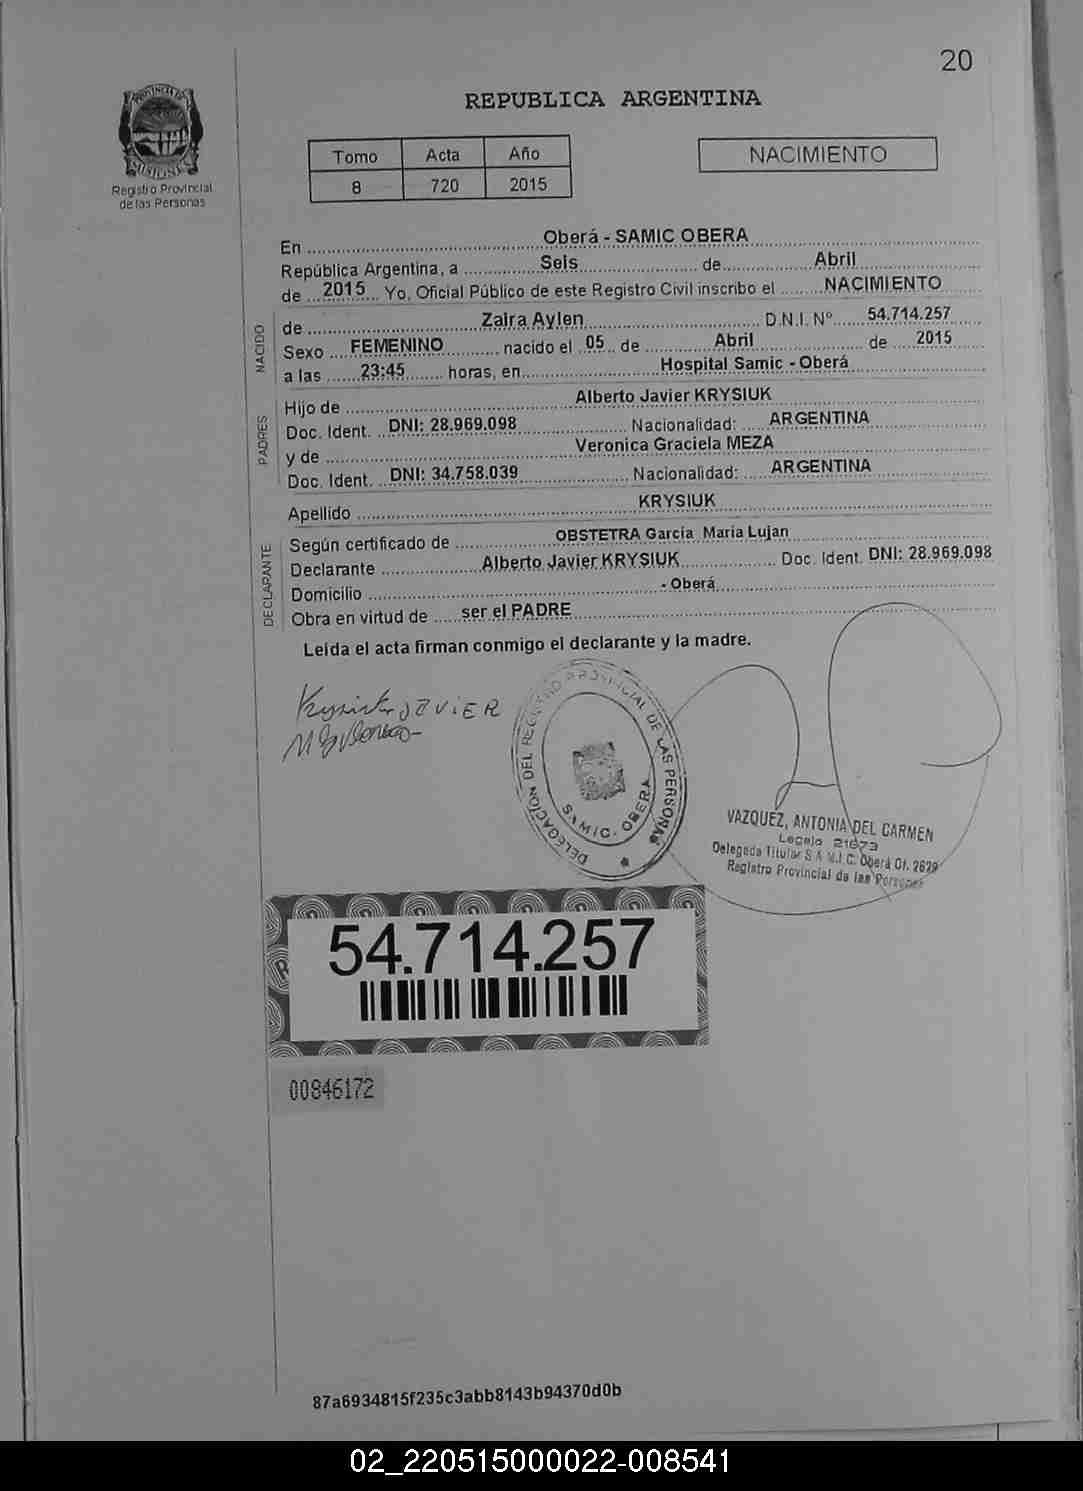 20
PROVINCIA DE
MISIONES
Registro Provincial
de las Personas
REPUBLICA ARGENTINA
Tomo Acta Año
8 720 2015
NACIMIENTO
En Oberá - SAMIC OBERA
República Argentina, a Seis de Abril
de 2015 Yo, Oficial Público de este Registro Civil inscribo el NACIMIENTO
NACIDO
de Zaira Aylen D.N.I. Nº 54.714.257
Sexo FEMENINO nacido el 05 de Abril de 2015
a las 23:45 horas, en Hospital Samic - Oberá
PADRES
Hijo de Alberto Javier KRYSIUK
Doc. Ident. DNI: 28.969.098 Nacionalidad: ARGENTINA
y de Veronica Graciela MEZA
Doc. Ident. DNI: 34.758.039 Nacionalidad: ARGENTINA
Apellido KRYSIUK
DECLARANTE
Según certificado de OBSTETRA Garcia Maria Lujan
Declarante Alberto Javier KRYSIUK Doc. Ident. DNI: 28.969.098
Domicilio - Oberá
Obra en virtud de ser el PADRE
Leida el acta firman conmigo el declarante y la madre.
Krysiuk JAVIER
DELEGACIÓN DEL REGISTRO PROVINCIAL DE LAS PERSONAS
S.A.M.I.C. OBERA
VAZQUEZ, ANTONIA DEL CARMEN
Legajo 21673
Delegada Titular S.A.M.I.C. Oberá Of. 2629
Registro Provincial de las Personas
54.714.257
00846172
87a6934815f235c3abb8143b94370d0b
02_220515000022-008541